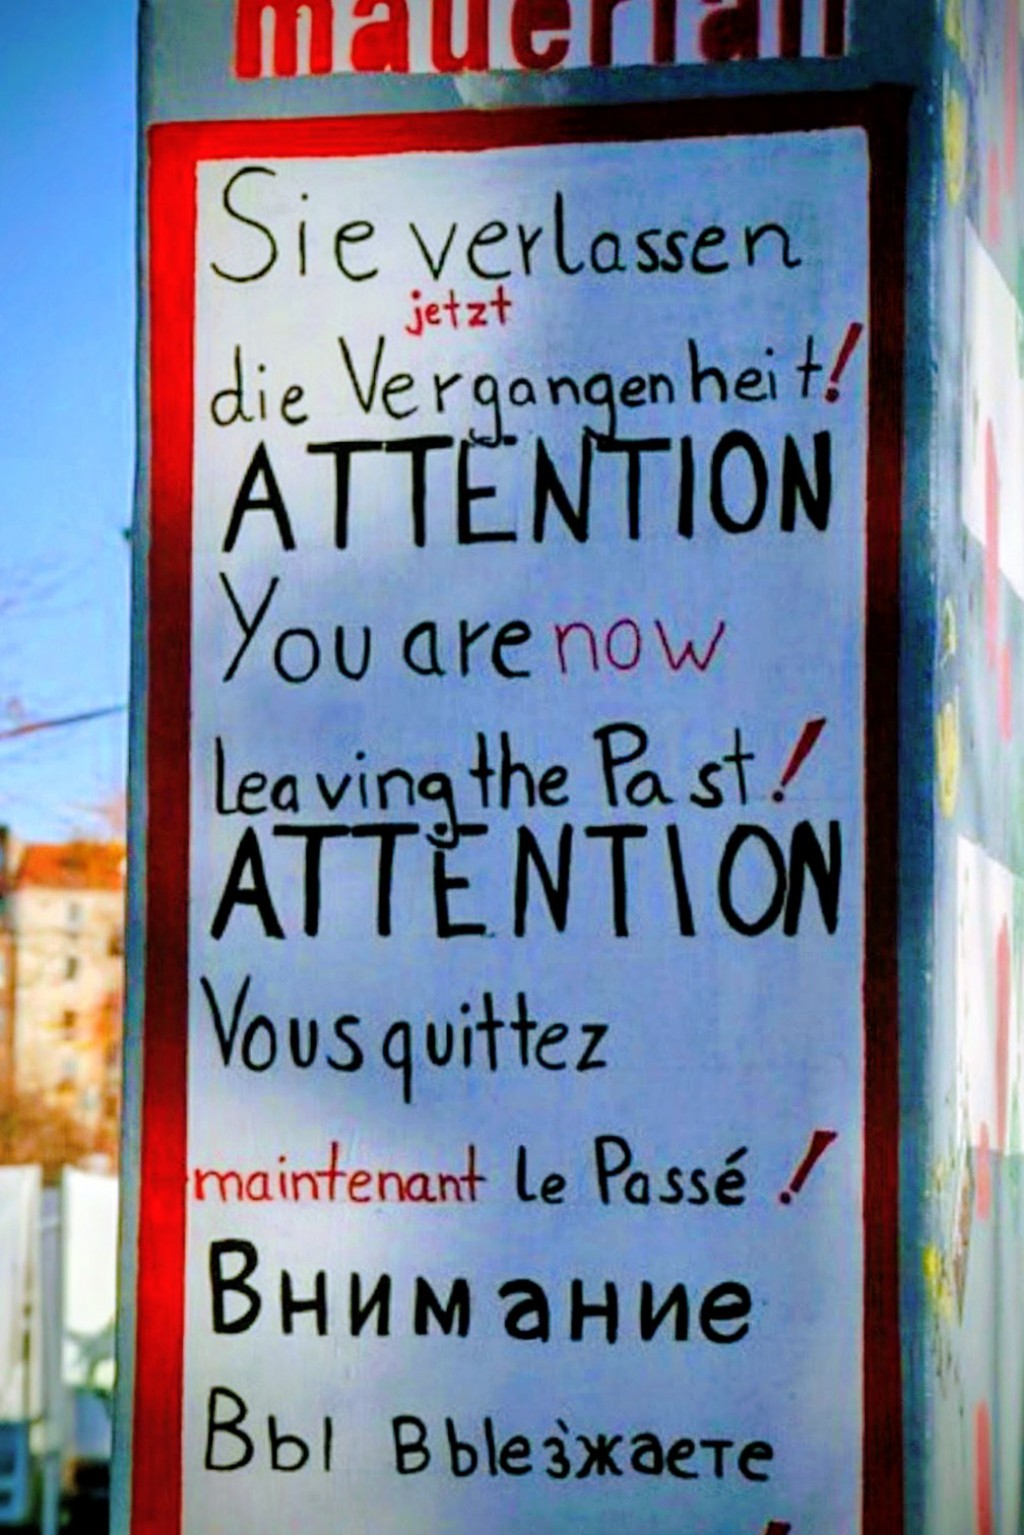 mauerfall
Sie verlassen
jetzt
die Vergangenheit!
ATTENTION
You are now
leaving the Past!
ATTENTION
Vous quittez
maintenant le Passé!
Внимание
Вы выезжаете